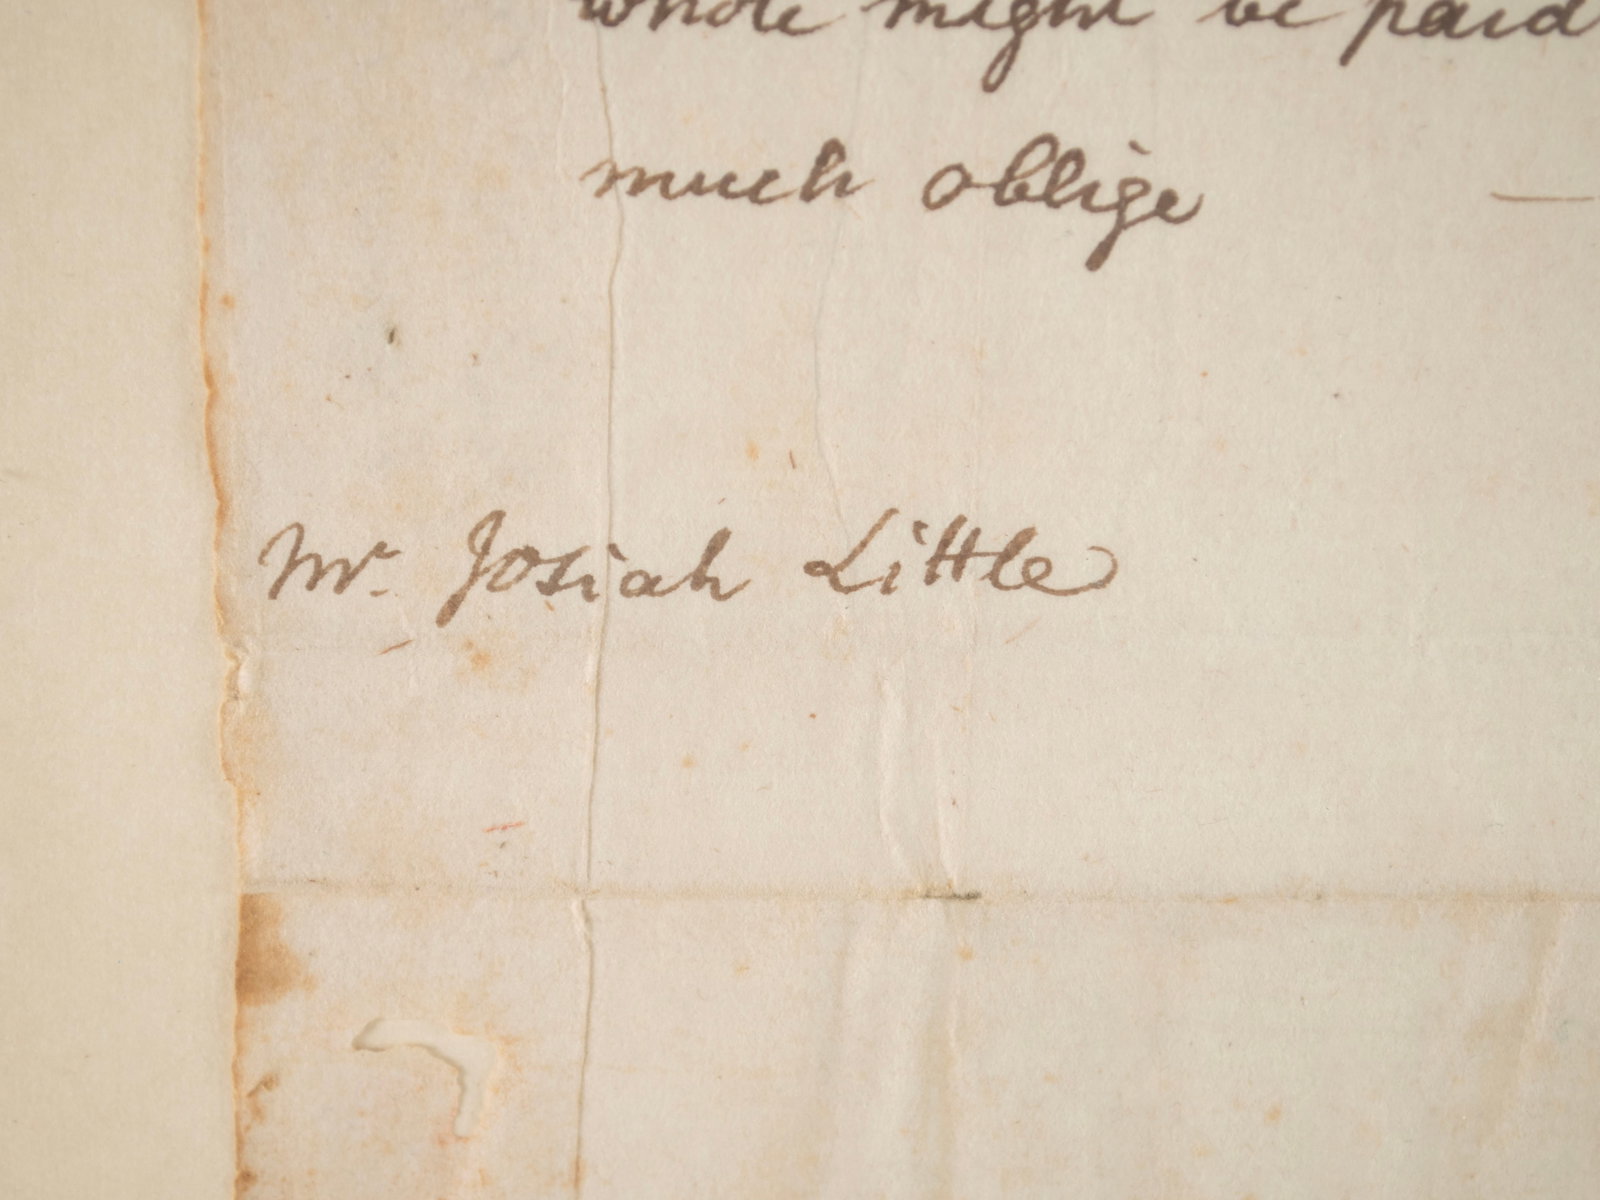 whole might be paid
much oblige —
Mr. Josiah Little